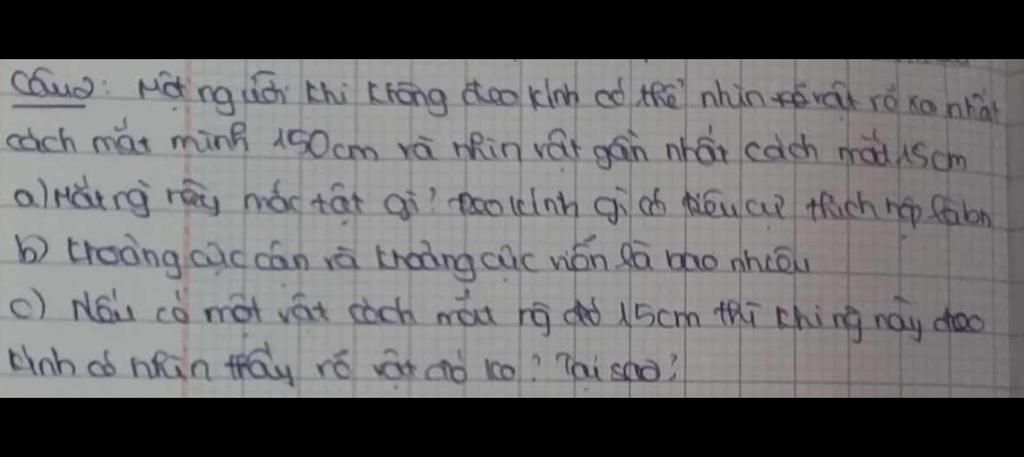 Câu2: Một người khi không đeo kính có thể nhìn vật rõ xa nhất
cách mắt mình 150cm và nhìn vật gần nhất cách mắt 15cm
a) Mắt ng này mắc tật gì? Đeo kính gì có tiêu cự thích hợp là bn
b) Khoảng cực cận và khoảng cực viễn là bao nhiêu
c) Nếu có một vật cách mắt ng đó 15cm thì khi ng này đeo
kính có nhìn thấy rõ vật đó ko? Tại sao?